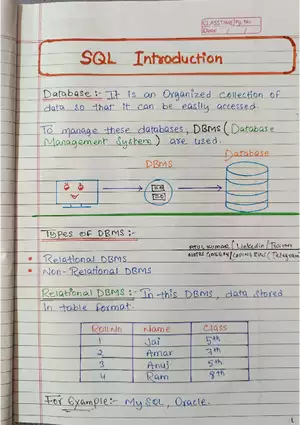 CLASSTIME Pg. No.
Date / /
SQL Introduction
Database :- It is an Organized collection of
data so that it can be easily accessed.
To manage these databases, DBMS (Database
Management System) are used.
Database
DBMS
Types of DBMS :-
Relational DBMS
Non-Relational DBMS
Relational DBMS :- In this DBMS, data stored
in table format.
Roll No Name Class
1 Jai 5th
2 Amar 7th
3 Anuj 5th
4 Ram 8th
For Example :- MySQL, Oracle.
1